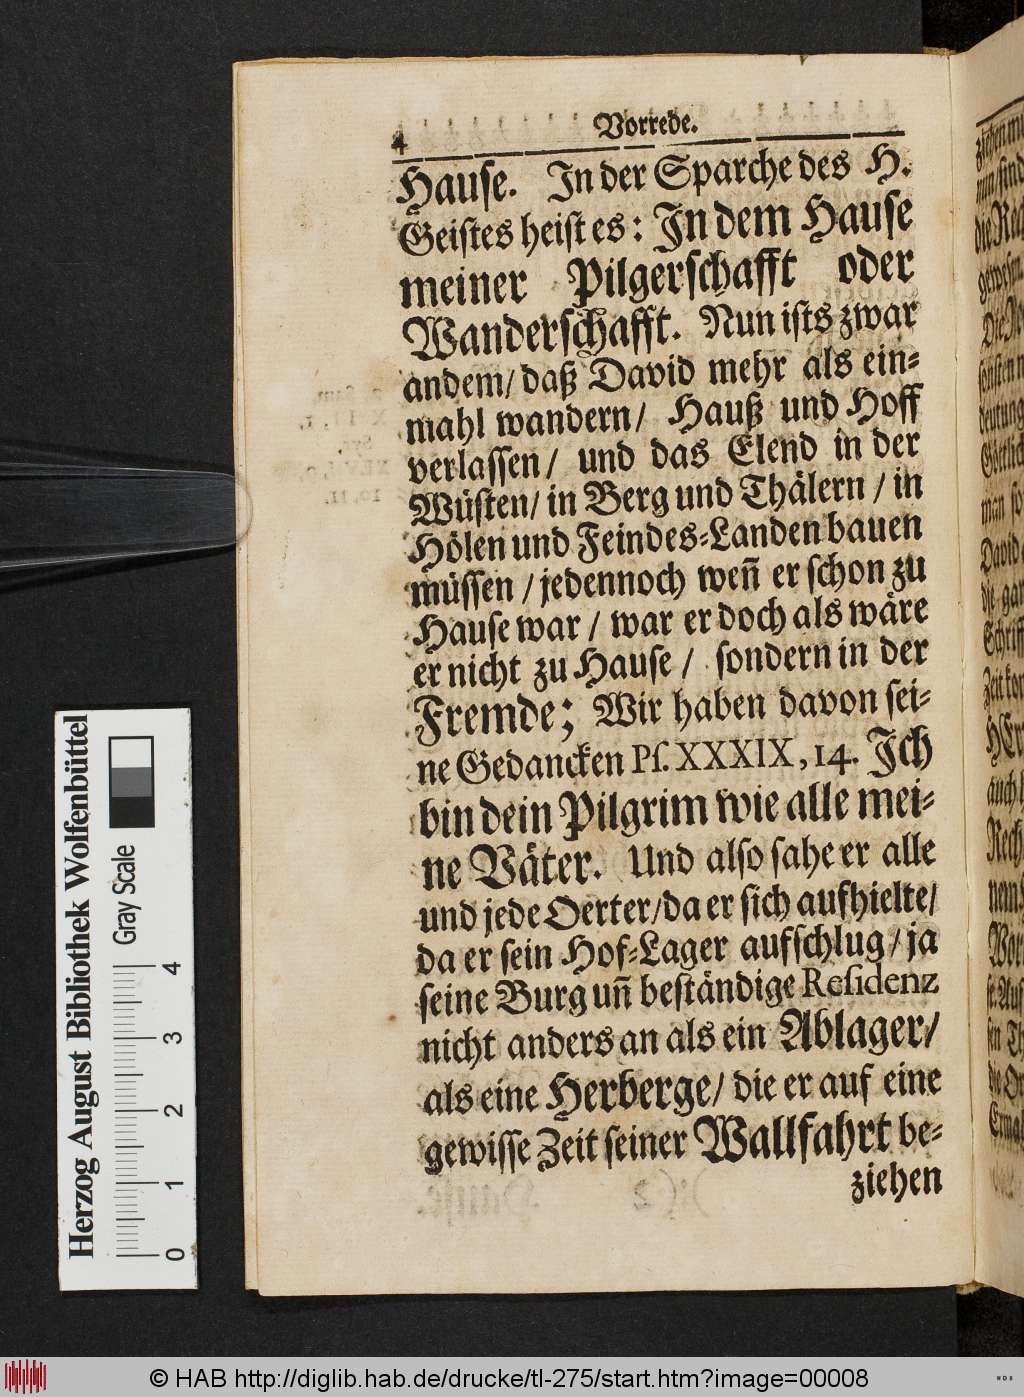 4 Vorrede.
Hauſe. In der Sparche des H.
Geiſtes heiſt es: In dem Hauſe
meiner Pilgerſchafft oder
Wanderſchafft. Nun iſts zwar
andem/ daß David mehr als ein⸗
mahl wandern/ Hauß und Hoff
verlaſſen/ und das Elend in der
Wüſten/ in Berg und Thälern / in
Hölen und Feindes⸗Landen bauen
müſſen / jedennoch weñ er ſchon zu
Hauſe war / war er doch als wäre
er nicht zu Hauſe / ſondern in der
Fremde; Wir haben davon ſei⸗
ne Gedancken Pſ. XXXIX, 14. Ich
bin dein Pilgrim wie alle mei⸗
ne Väter. Und alſo ſahe er alle
und jede Oerter/ da er ſich aufhielte/
da er ſein Hof⸗Lager aufſchlug / ja
ſeine Burg uñ beſtändige Reſidenz
nicht anders an als ein Ablager/
als eine Herberge/ die er auf eine
gewiſſe Zeit ſeiner Wallfahrt be⸗
ziehen
Herzog August Bibliothek Wolfenbüttel
Gray Scale
0 1 2 3 4
© HAB http://diglib.hab.de/drucke/tl-275/start.htm?image=00008